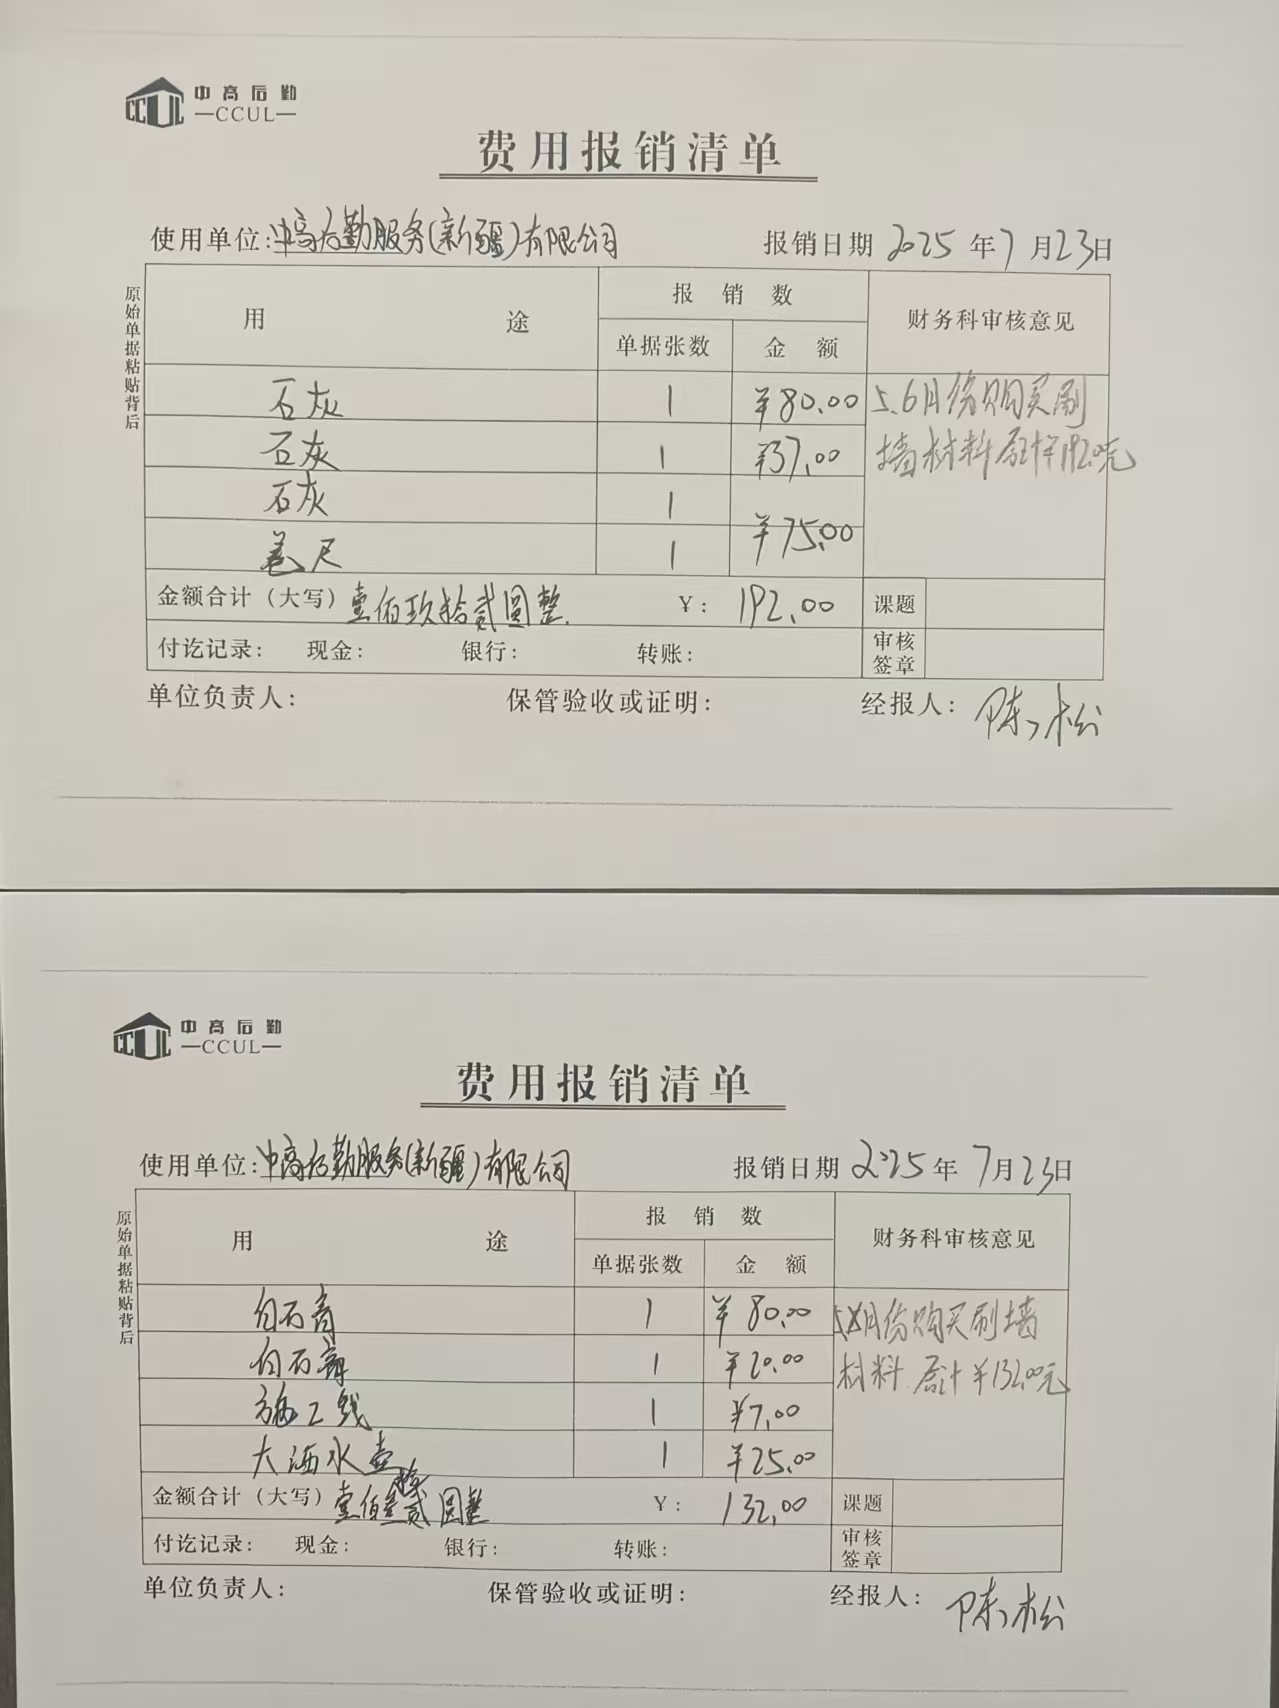 中高后勤
CCUL
费用报销清单
使用单位:中高后勤服务(新疆)有限公司 报销日期 2025年7月23日
原始单据粘贴背后
用途 报销数 财务科审核意见
单据张数 金额
石灰 1 ¥80.00 5.6月份购买刷
石灰 1 ¥37.00 墙材料 合计¥192.00元
石灰 1
卷尺 1 ¥75.00
金额合计(大写) 壹佰玖拾贰圆整. ¥: 192.00 课题
付讫记录: 现金: 银行: 转账: 审核签章
单位负责人: 保管验收或证明: 经报人: 陈松
中高后勤
CCUL
费用报销清单
使用单位:中高后勤服务(新疆)有限公司 报销日期 2025年7月23日
原始单据粘贴背后
用途 报销数 财务科审核意见
单据张数 金额
白石膏 1 ¥80.00 月份购买刷墙
白石膏 1 ¥20.00 材料.合计¥132.00元
施工线 1 ¥7.00
大洒水壶 1 ¥25.00
金额合计(大写) 壹佰叁拾贰圆整 ¥: 132.00 课题
付讫记录: 现金: 银行: 转账: 审核签章
单位负责人: 保管验收或证明: 经报人: 陈松